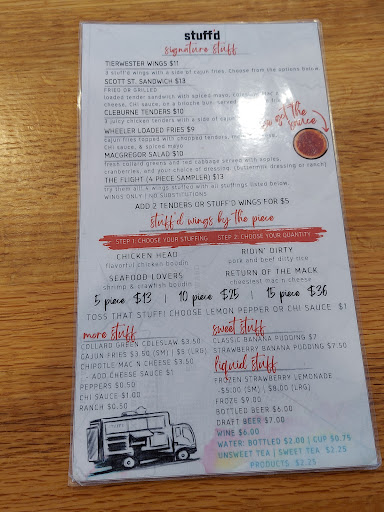 stuff'd
signature stuff
TIERWESTER WINGS $11
3 stuff'd wings with a side of cajun fries. Choose from the options below.
SCOTT ST. SANDWICH $13
FRIED OR GRILLED
loaded tender sandwich with spiced mayo,
cheese, CHI sauce, on a brioche bun. served
CLEBURNE TENDERS $10
3 juicy chicken tenders with a side of
WHEELER LOADED FRIES $9
cajun fries topped with chopped tenders,
CHI sauce, & spiced mayo
MACGREGOR SALAD $10
fresh collard greens and red cabbage served with apples,
cranberries, and your choice of dressing. (buttermilk dressing or ranch)
THE FLIGHT (4 PIECE SAMPLER) $13
try them all! 4 wings stuffed with all stuffings listed below.
WINGS ONLY / NO SUBSTITUTIONS
got the
sauce
ADD 2 TENDERS OR STUFF'D WINGS FOR $5
stuff'd wings by the piece
STEP 1: CHOOSE YOUR STUFFING STEP 2: CHOOSE YOUR QUANTITY
CHICKEN HEAD RIDIN' DIRTY
flavorful chicken boudin pork and beef dirty rice
SEAFOOD LOVERS RETURN OF THE MACK
shrimp & crawfish boudin cheesiest mac n cheese
5 piece $13 | 10 piece $25 | 15 piece $36
TOSS THAT STUFF! CHOOSE LEMON PEPPER OR CHI SAUCE $1
more stuff
COLLARD GREEN COLESLAW $3.50
CAJUN FRIES $3.50 (SM) | $5 (LRG)
CHIPOTLE MAC N CHEESE $3.50
- ADD CHEESE SAUCE $1
PEPPERS $0.50
CHI SAUCE $1.00
RANCH $0.50
sweet stuff
CLASSIC BANANA PUDDING $7
STRAWBERRY BANANA PUDDING $7.50
liquid stuff
FROZEN STRAWBERRY LEMONADE
-$5.00 (SM) | $8.00 (LRG)
FROZE $9.00
BOTTLED BEER $6.00
DRAFT BEER $7.00
WINE $6.00
WATER: BOTTLED $2.00 | CUP $0.75
UNSWEET TEA | SWEET TEA $2.25
PRODUCTS $2.25